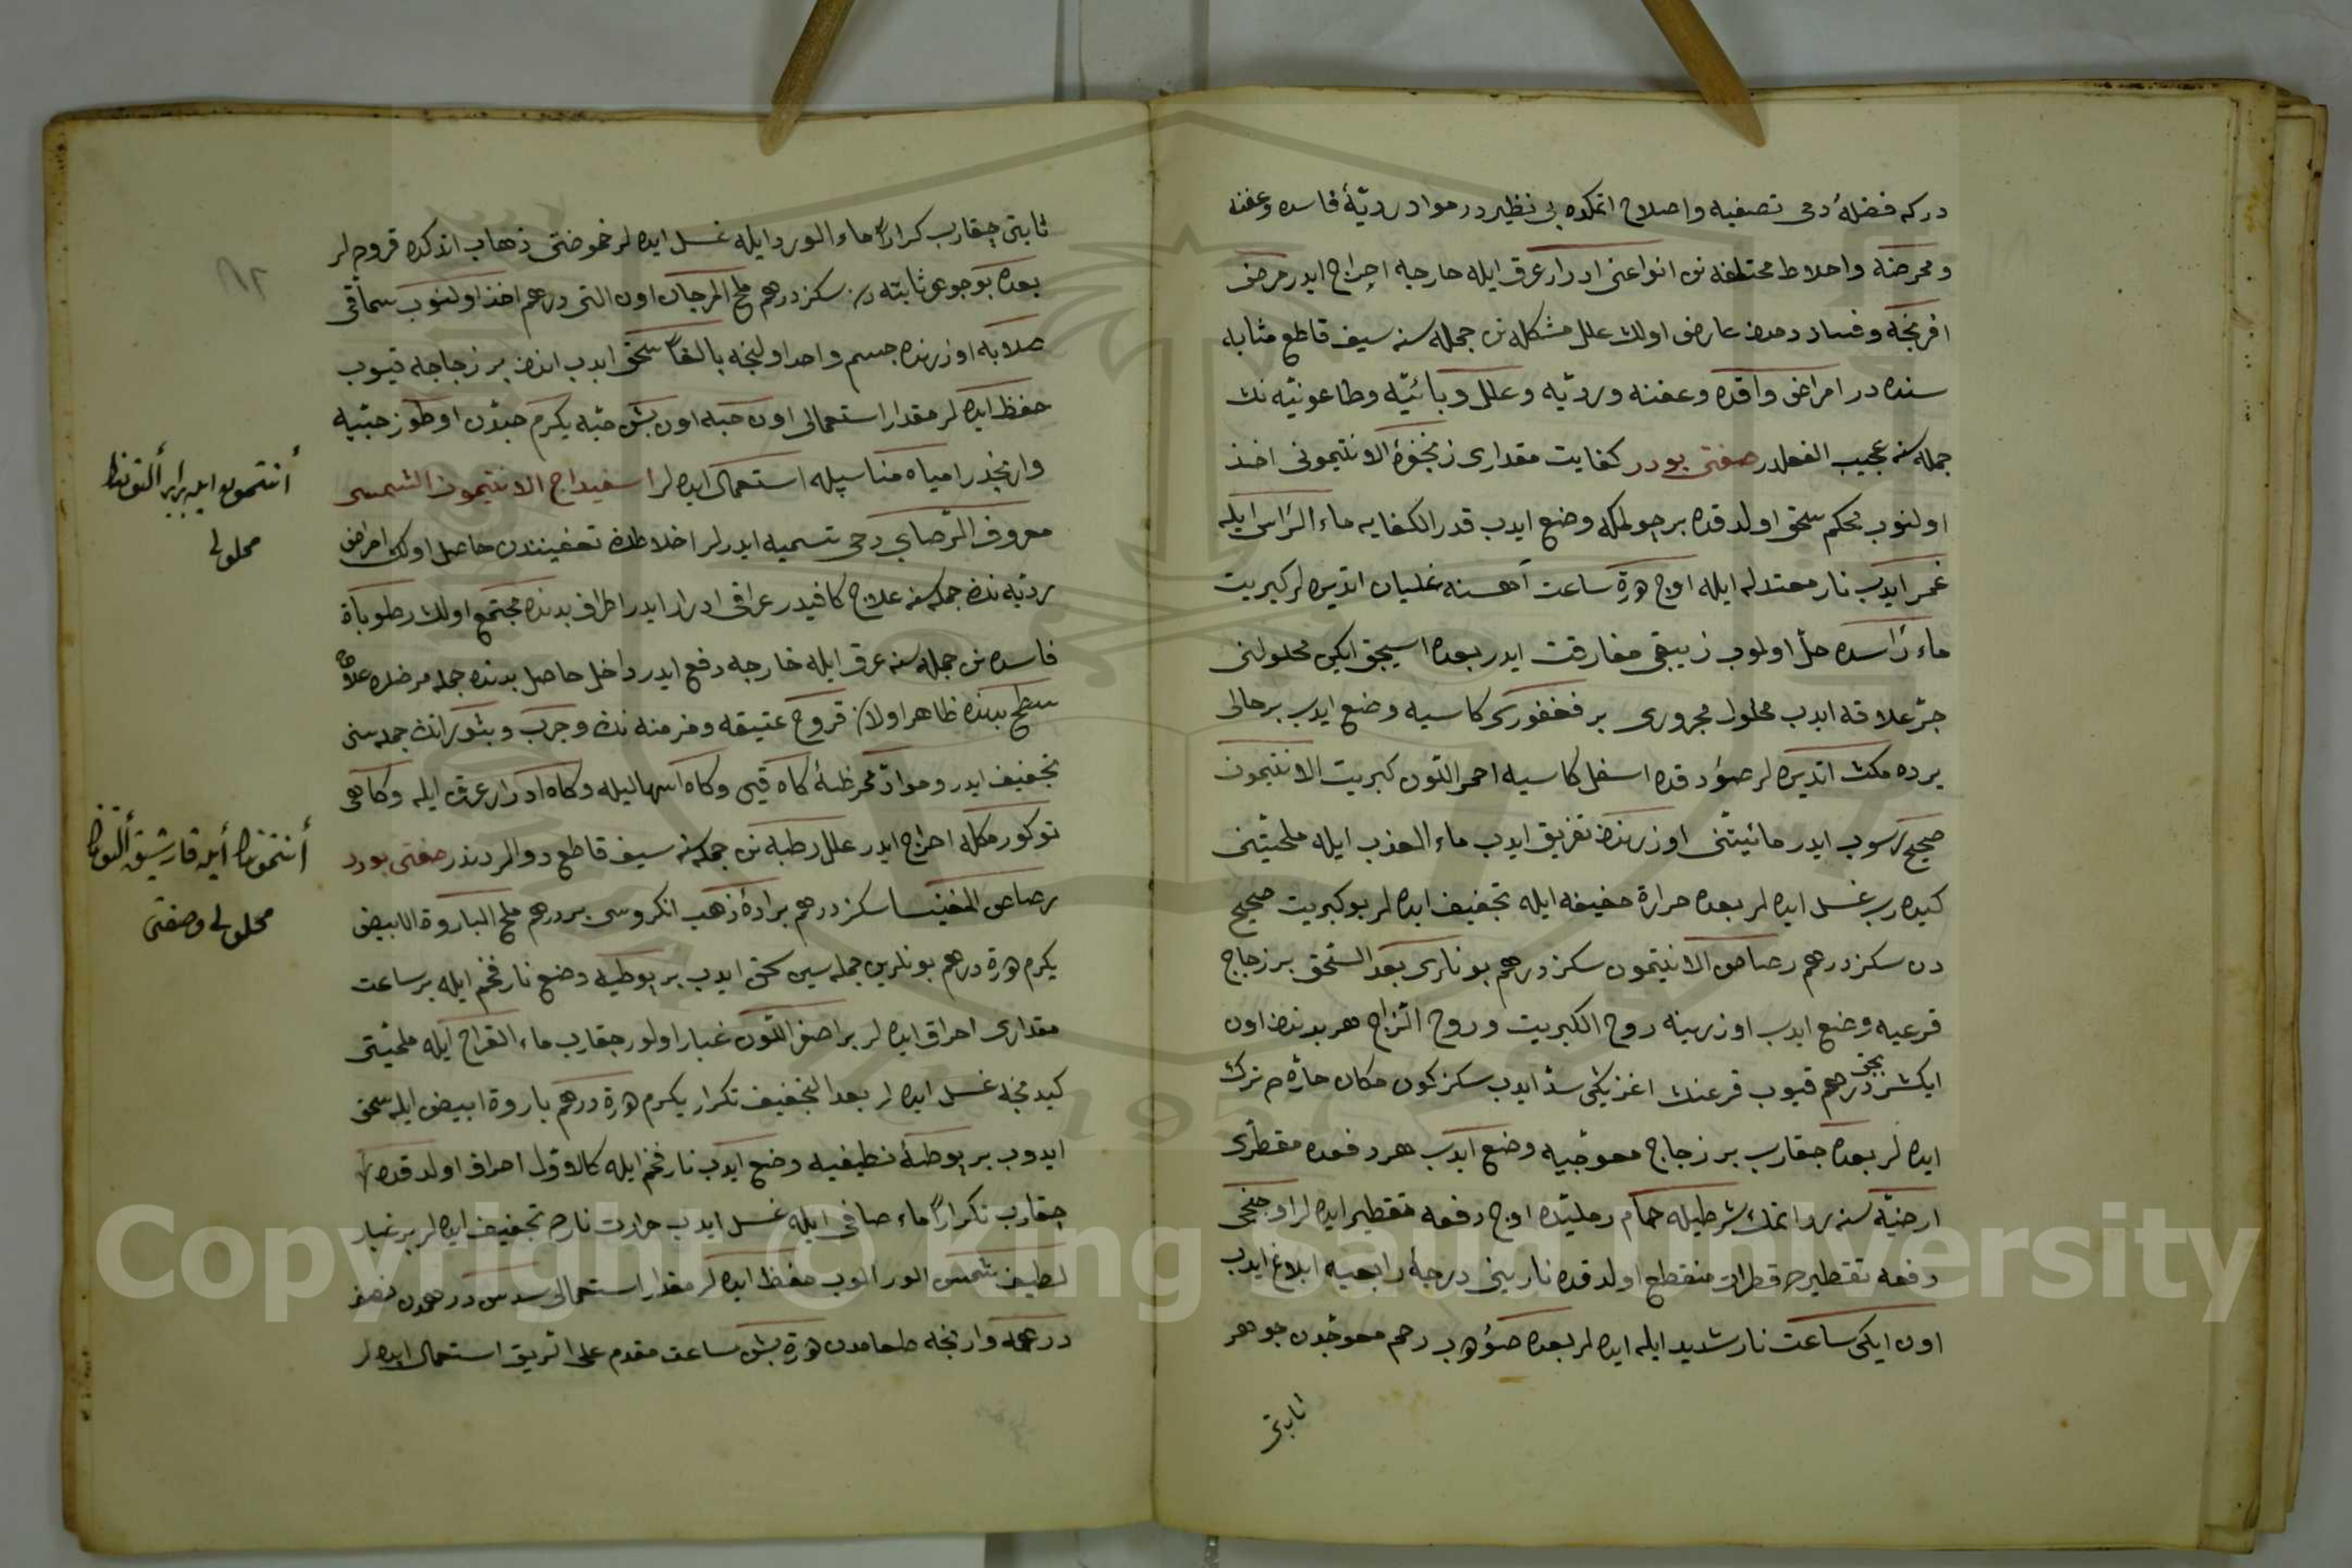 در كه فضلهٔ دمى تصفيه و اصلاح اتمكده بى نظير در مواد رديّهٔ فاسده و عفنه
و محرضه و اخلاط مختلفه نن انواعنى ادرار عرق ايله خارجه اخراج ايدر مرض
افرنجه و فساد دمدن عارض اولان علل مشكله نن جمله سنه سيف قاطع مثابه
سنده در امراض وافده و عفنه و رديّه و علل وبائيّه و طاعونيّه نك
جمله سنه عجيب الفعلدر صفتى بودر كفايت مقدارى زنجفرهٔ الانتيمونى اخذ
اولنوب محكم سحق اولندقده بر چولمكه وضع ايدب قدر الكفايه ماء الرأس ايله
غمر ايدب نار معتدله ايله اوچ درت ساعت آهسته غليان اتديره لر كبريت
ماء رأسده حل اولوب زيبقى مفارقت ايدر بعده اسيجق ايكن محلولنى
جرّ علاقه ايدب محلول مجرورى بر فغفورى كاسيه وضع ايدب بر حالى
يرده مكث اتديره لر صؤدقده اسفل كاسيه احمر اللون كبريت الانتيمون
صحيح رسوب ايدر مائيتنى اوزرندن تفريق ايدب ماء العذب ايله ملحيّتنى
كيدرب غسل ايده لر بعده حرارة خفيفه ايله تجفيف ايده لر بو كبريت صحيح
دن سكز درهم رصاص الانتيمون سكز درهم بونلرى بعد السحق بر زجاج
قرعيه وضع ايدب اوزرينه روح الكبريت و روح الزاج هر بدندن اون
ايكيشر درهم قيوب قرعنك اغزينى سدّ ايدب سكز كون مكان حارّه ده ترك
ايده لر بعده چقارب بر زجاج معوجيه وضع ايدب هر دفعده مقطرى
ارضيّه سنه رد اتمك شرطيله حمام رمليّده اوچ دفعه تقطير ايده لر اوچنجى
دفعه تقطيرده قطرات منقطع اولدقده نارينى درجهٔ رابعيه ابلاغ ايدب
اون ايكى ساعت نار شديد ايله ايده لر بعده صؤدب رحم معوجدن جوهر
ثابتى
ثابتى چقارب كراراً ماء الورد ايله غسل ايده لر حموضتى ذهاب اتدكده قروج لر
بعده بو جوهر ثابته دن سكز درهم ملح المرجان اون التى درهم اخذ اولنوب سماقى
صلايه اوزرنده جسم واحد اولنجه بالغاً سحق ايدب اندن بر زجاجه قيوب
حفظ ايده لر مقدار استعمالى اون حبه اون بش حبه يكرم حبّدن اوطوز حبّيه
وارنجه در امياه مناسبله استعمال ايده لر اسفيداج الانتيمون الشمسى
معروف الرصاصى دخى تسميه ايدرلر اخلاطك تعفينندن حاصل اولان امراض
رديّه نك جمله سنه علاج كافيدر عراقى ادرار ايدر اطراف بدنده مجتمع اولان رطوبات
فاسده نن جمله سنه عرق ايله خارجه دفع ايدر داخل حاصل بدنده جمله مرضلره علاج
سطح بدنده ظاهر اولان قروح عتيقه و مزمنه نك و جرب و بثورانك جمله سنى
تجفيف ايدر و موادّ محرضهٔ كاه قيى و كاه اسهاليله و كاه ادرار عرق ايله و كاهى
توكورمكله اخراج ايدر علل رطبه نن جمله سنه سيف قاطع دوالردندر صفتى بودر
رصاص المغنيسا سكز درهم برادهٔ ذهب انكروسى بر درهم ملح البارود الابيض
يكرم درت درهم بونلرين جمله سين سحق ايدب بر بوطيه وضع نار فحم ايله بر ساعت
مقدارى احراق ايده لر بر اصفر اللون غبار اولور چقارب ماء القراح ايله ملحيّتى
كيدنجه غسل ايده لر بعد التجفيف تكرار يكرم درت درهم بارود ابيض ايله سحق
ايدوب بر بوطهٔ نظيفيه وضع ايدب نار فحم ايله كالاول احراق اولندقده
چقارب تكراراً ماء صافى ايله غسل ايدب حرارت نارده تجفيف ايده لر بر غبار
لطيف شمسى الور الوب حفظ ايده لر مقدار استعمالى سدس درهمدن نصف
درهمه وارنجه طعامدن درت بش ساعت مقدم على الريق استعمال ايده لر
أنتيمون ايله برابر ألتونك
محلولى
أنتيمون ايله قارشيق ألتونك
محلولى و صفتى
٨٢